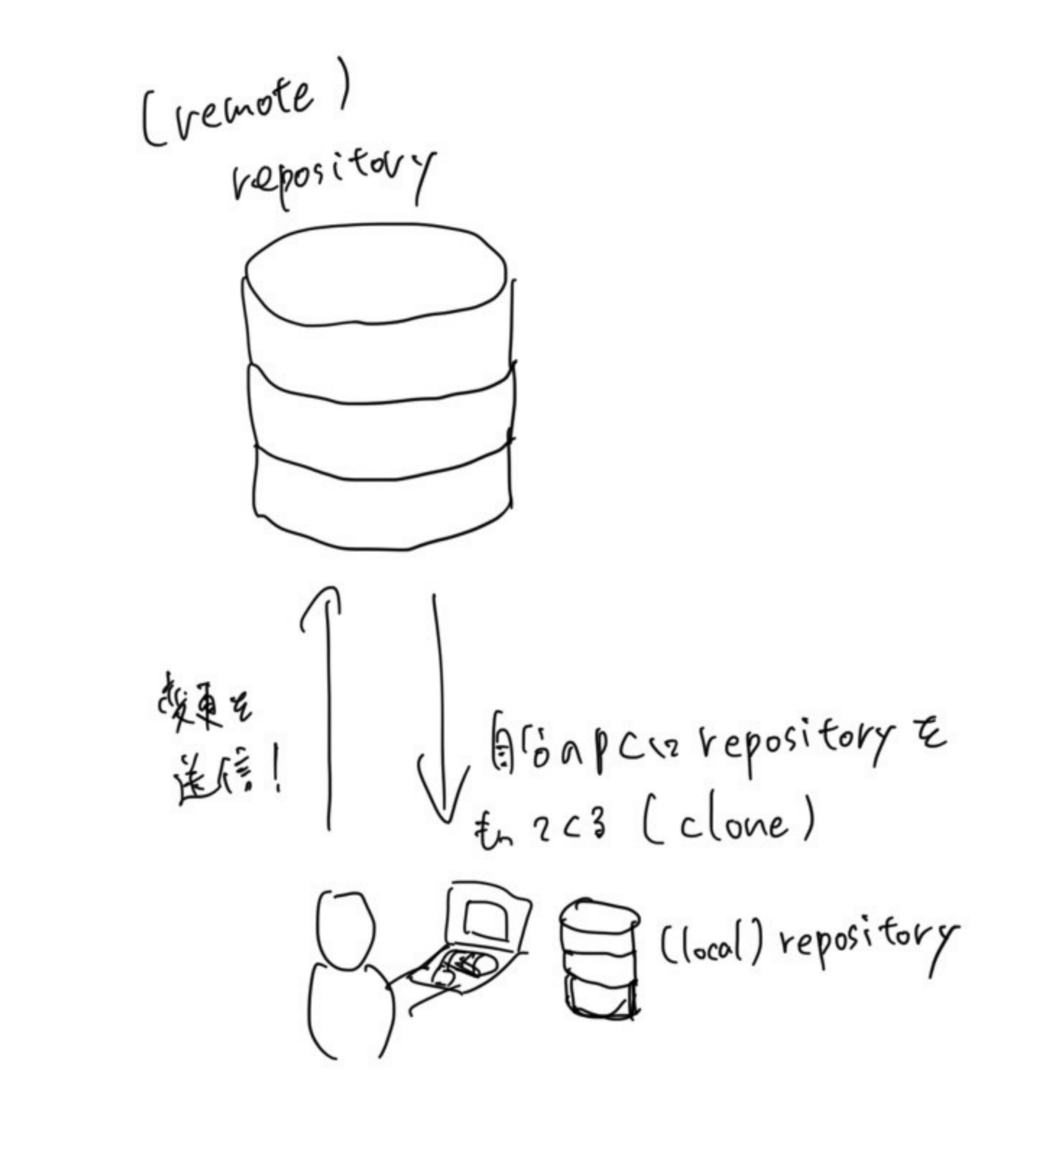 (remote)
repository
変更を
送信!
自分のpcにrepositoryを
もってくる (clone)
(local) repository